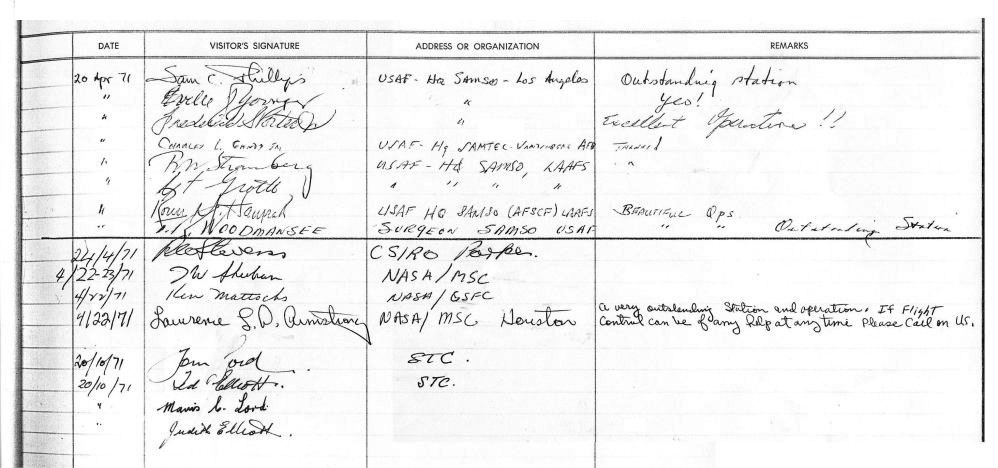 DATE VISITOR'S SIGNATURE ADDRESS OR ORGANIZATION REMARKS
20 Apr 71 Sam C. Phillips USAF - HQ SAMSO - Los Angeles Outstanding station
" " Yes!
" Frederick " Excellent Operations !!
" CHARLES L. USAF - Hq SAMTEC - VANDENBERG AFB
" Stromberg USAF - HQ SAMSO, LAAFS "
" " " " "
" USAF HQ SAMSO (AFSCF) LAAFS BEAUTIFUL Ops
" WOODMANSEE SURGEON SAMSO USAF " " Outstanding Station
24/4/71 Stevens CSIRO Parkes.
4/22-23/71 JW NASA/MSC
4/22/71 Ken Mattocks NASA/GSFC
4/22/71 Lawrence L.D. Armstrong NASA/MSC Houston A very outstanding Station and operation. If Flight
Control can be of any help at any time Please Call on US.
20/10/71 Tom STC.
20/10/71 Ted Elliott. STC.
" Mavis Lord
" Judith Elliott.